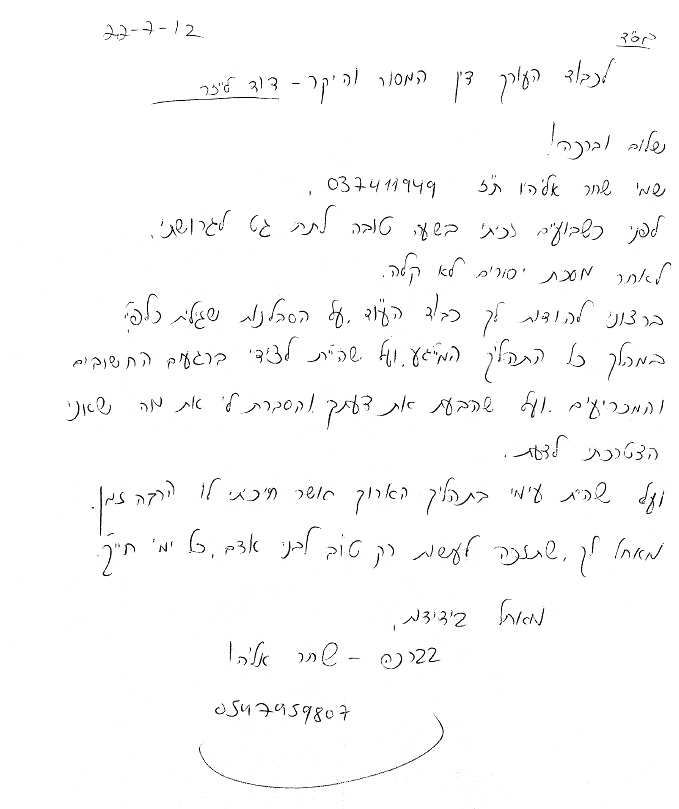 בס"ד
22-7-12
לכבוד העורך דין המסור והיקר - דוד ליזר
שלום וברכה!
שמי שחר אליהו ת"ז 037411949,
לפני כשבועיים זכיתי בשעה טובה לתת גט לגרושתי,
לאחר מסכת יסורים לא קלה.
ברצוני להודות לך כבוד העו"ד, על הסבלנות שגילית כלפיי
במהלך כל התהליך המייגע, ועל שהיית לצידי ברגעים החשובים
והמכריעים. ועל שהבעת את דעתך, והסברת לי את מה שאני
הצטרכתי לדעת.
ועל שהית עימי בתהליך הארוך אשר חיכתי לו הרבה זמן.
מאחל לך, שתזכה לעשות רק טוב לבני אדם, כל ימי חייך.
מאחל בידידות,
בברכה - שחר אליהו
0547459807